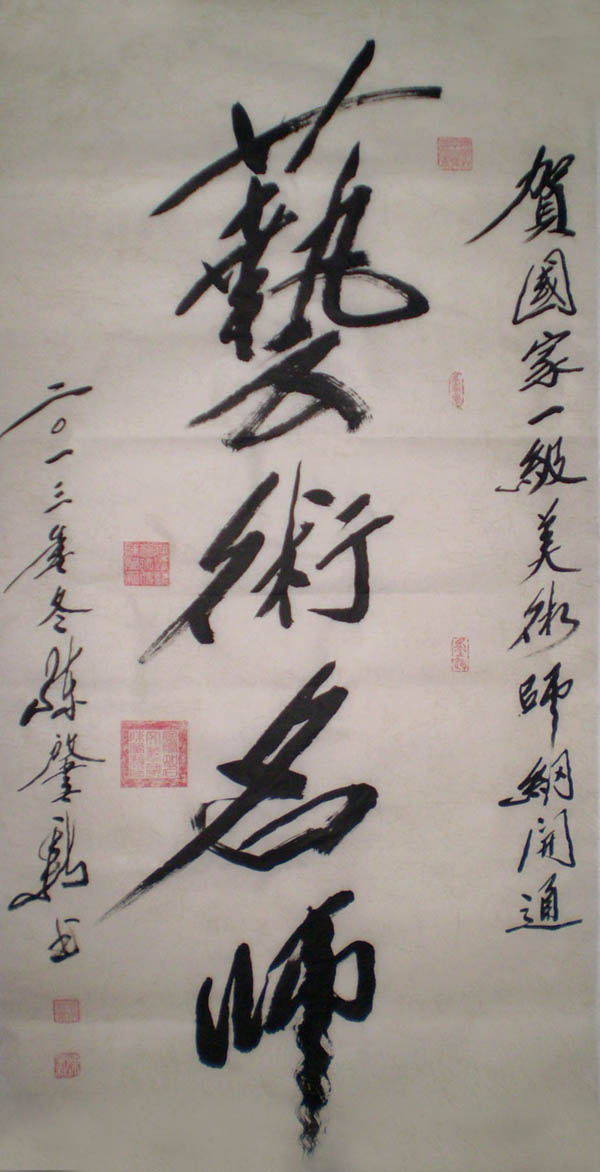 賀國家一級美術師網開通
藝術名師
二〇一三年冬陳肇勳书